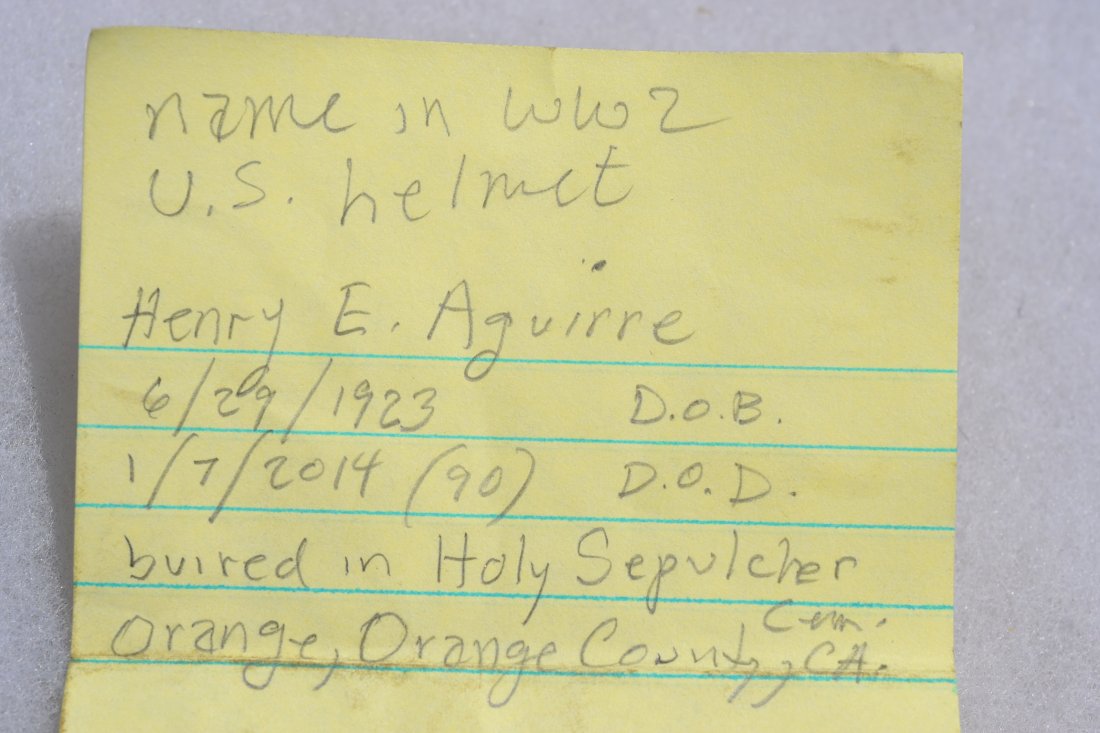 name in WW2
U.S. helmet
Henry E. Aguirre
6/29/1923 D.O.B.
1/7/2014 (90) D.O.D.
buired in Holy Sepulcher
Cem.
Orange, Orange County, CA.